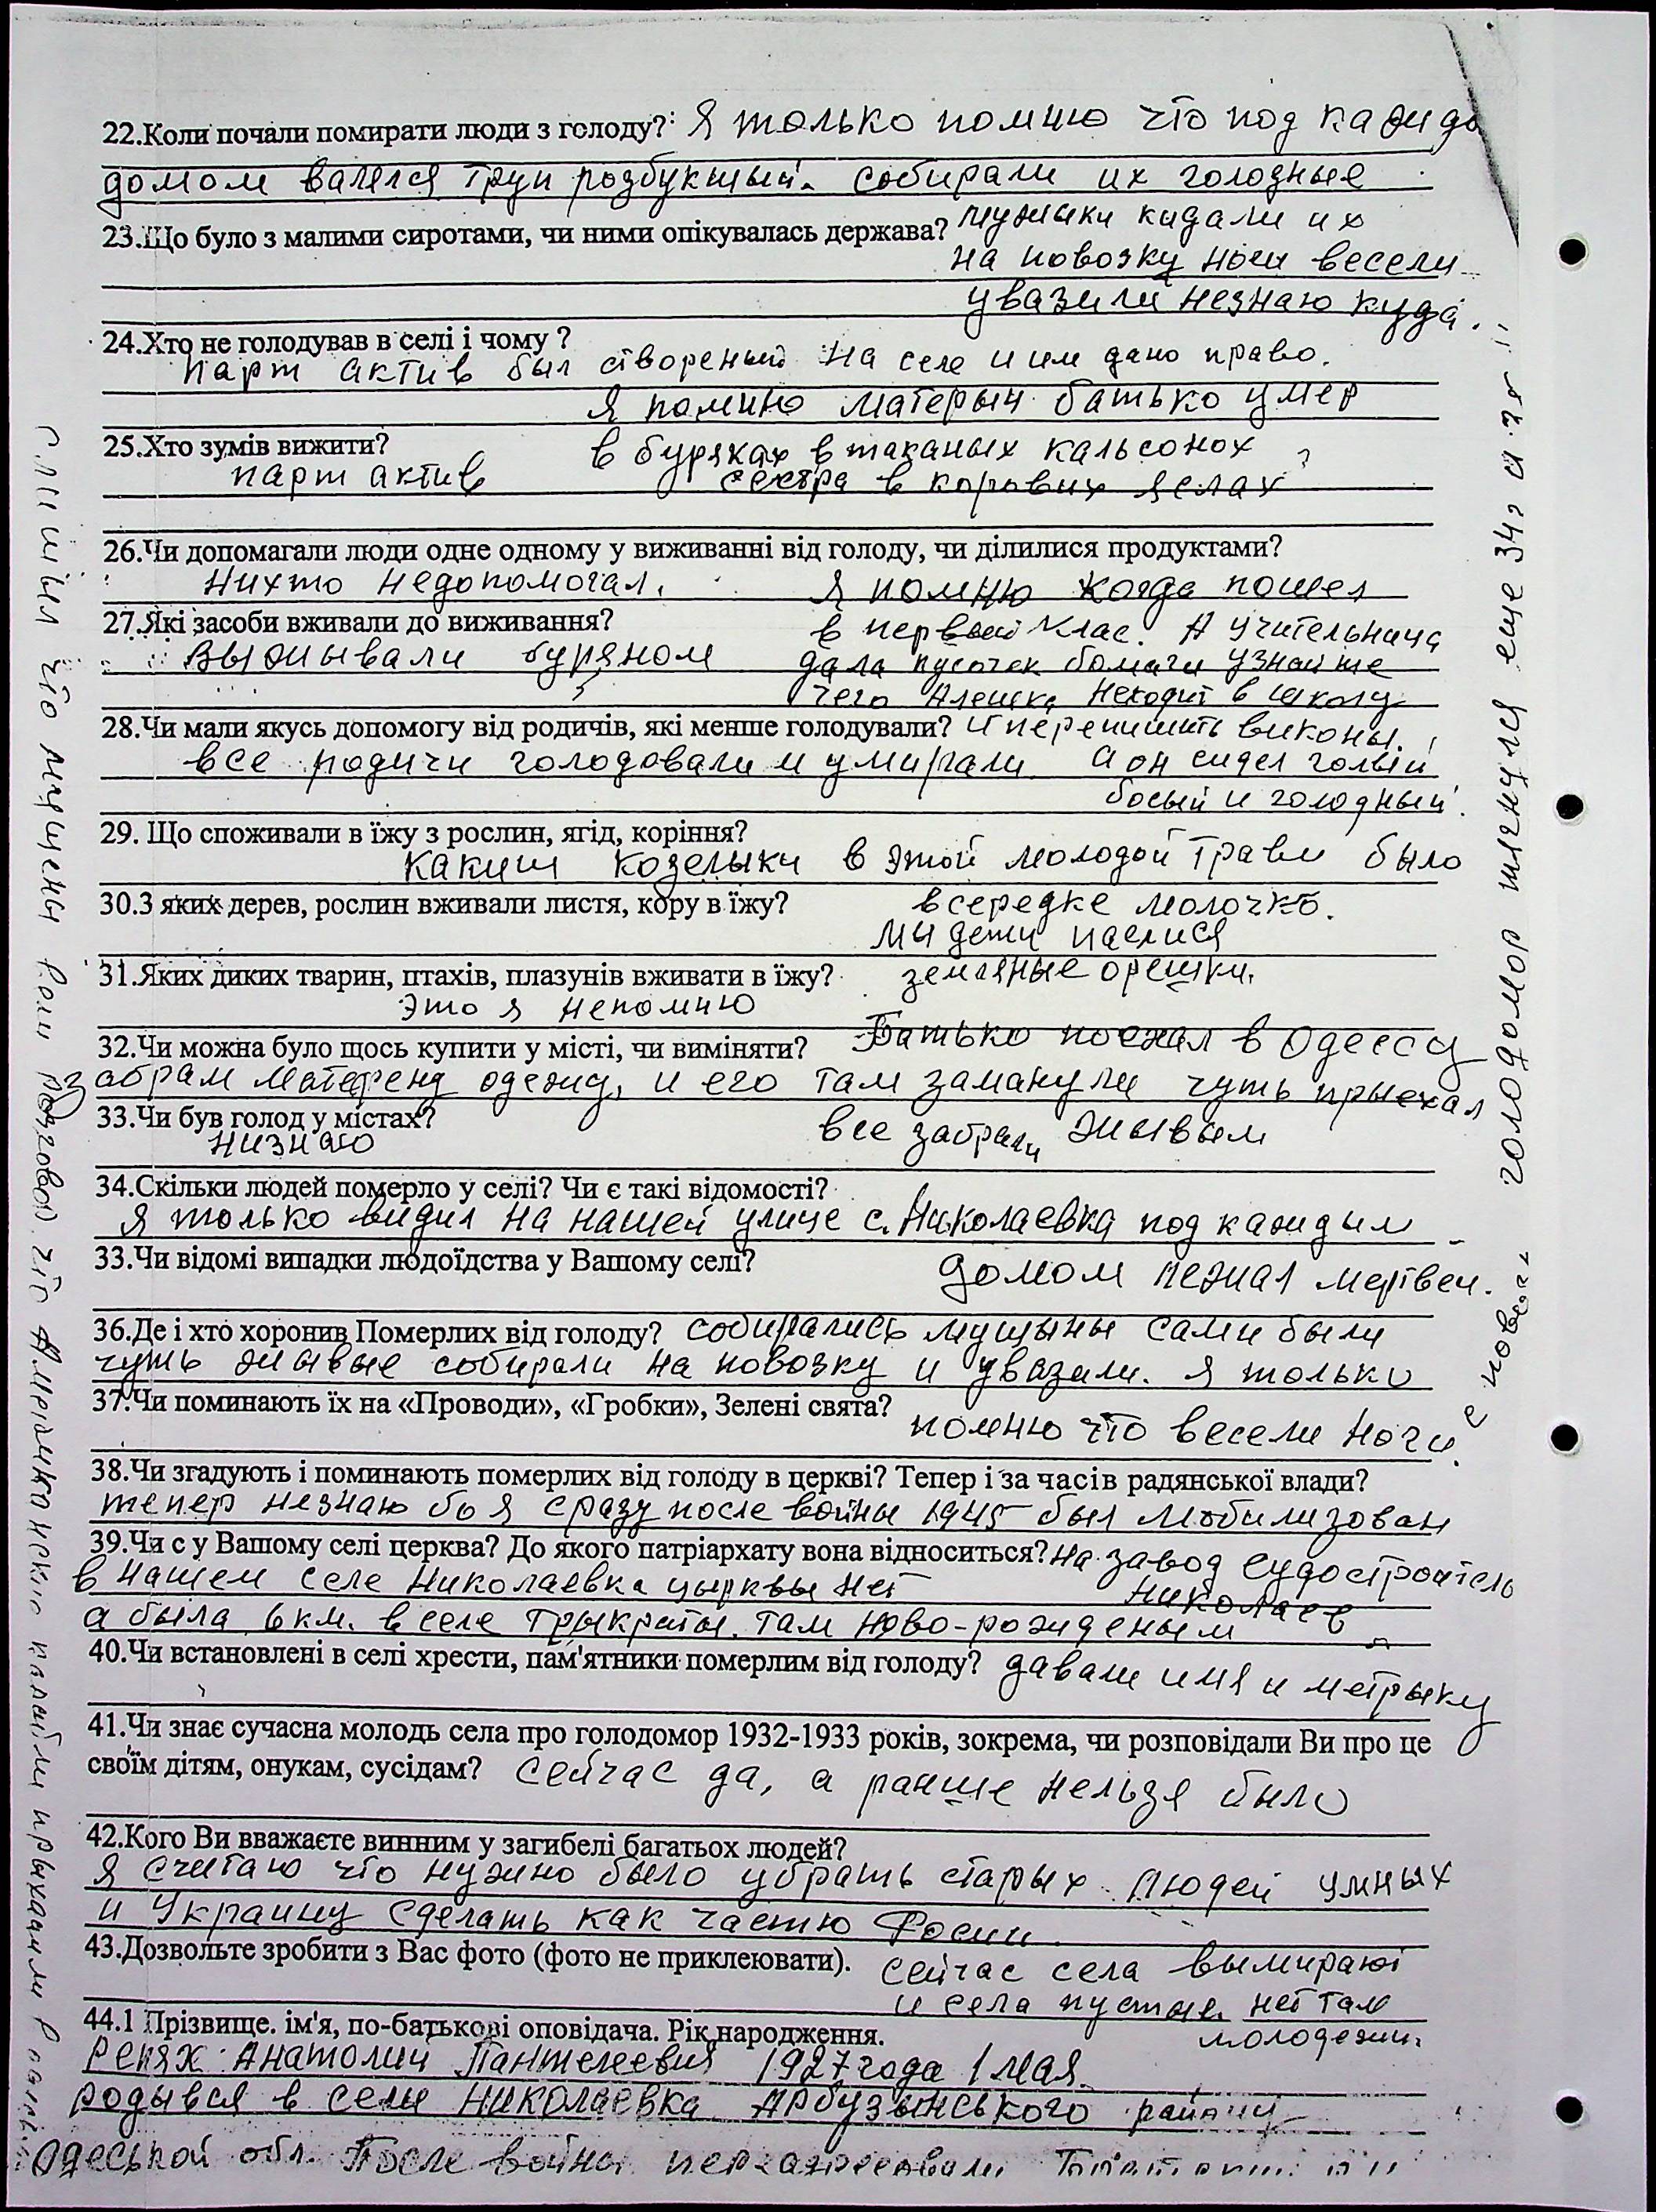 22.Коли почали помирати люди з голоду? Я только помню что под кажды
домом валялся труп розбукшый. собирали их голодные
23.Що було з малими сиротами, чи ними опікувалась держава? мужыки кидали их
на повозку ноги весели
увазили незнаю куда.
24.Хто не голодував в селі і чому ?
парт актив был створеный на селе и им дано право.
Я помню матерын батько умер
25.Хто зумів вижити? в буряках в тканых кальсонох
парт актив сестра в корових яслах
26.Чи допомагали люди одне одному у виживанні від голоду, чи ділилися продуктами?
Нихто недопомогал. Я помню когда пошел
27.Які засоби вживали до виживання? в первый клас. А учительныца
Выжывали буряном дала кусочек бомаги узнайте
чего Алешка неходит в школу
28.Чи мали якусь допомогу від родичів, які менше голодували? и перепишить виконы.
все родичи голодовали и умирали а он сидел голый
босый и голодный.
29. Що споживали в їжу з рослин, ягід, коріння?
какиш козелыки в этой молодой трави было
30.З яких дерев, рослин вживали листя, кору в їжу? всередке молочко.
мы дети паслися
31.Яких диких тварин, птахів, плазунів вживати в їжу? земляные орешки.
Это я непомню
32.Чи можна було щось купити у місті, чи виміняти? Батько поехал в Одессу
забрал одежу, и его там заманули чуть прыехал
33.Чи був голод у містах? все забрали жывым
низнаю
34.Скільки людей померло у селі? Чи є такі відомості?
Я только видил на нашей улице с. Николаевка под каждым
33.Чи відомі випадки людоїдства у Вашому селі? домом лежал мертвец.
36.Де і хто хоронив Померлих від голоду? собирались мущыны сами были
чуть жывые собирали на повозку и увазали. Я только
37.Чи поминають їх на «Проводи», «Гробки», Зелені свята? помню что весели ноги.
38.Чи згадують і поминають померлих від голоду в церкві? Тепер і за часів радянської влади?
тепер незнаю бо я сразу после войны 1945 был мобилизован
39.Чи є у Вашому селі церква? До якого патріархату вона відноситься? на завод судостроитель
в нашем селе Николаевка цырквы нет Николаев
а была 6 км. в селе Трыкраты. там ново-рожденым
40.Чи встановлені в селі хрести, пам'ятники померлим від голоду? давали имя и метрыку
41.Чи знає сучасна молодь села про голодомор 1932-1933 років, зокрема, чи розповідали Ви про це
своїм дітям, онукам, сусідам? Сейчас да, а раньше нельзя было
42.Кого Ви вважаєте винним у загибелі багатьох людей?
Я считаю что нужно было убрать старых людей умных
и Украину сделать как частю Росии.
43.Дозвольте зробити з Вас фото (фото не приклеювати). сейчас села вымирают
и села пустые. нет там
молодежи.
44.1 Прізвище. ім'я, по-батькові оповідача. Рік народження.
Репях Анатолий Пантелеевич 1927 года 1 мая.
родывся в селе Николаевка Арбузынського району
Одеськой обл. После войны
голодомор тягнулся еще 34,
слышил что мущены вели розговор что Американскии карабли